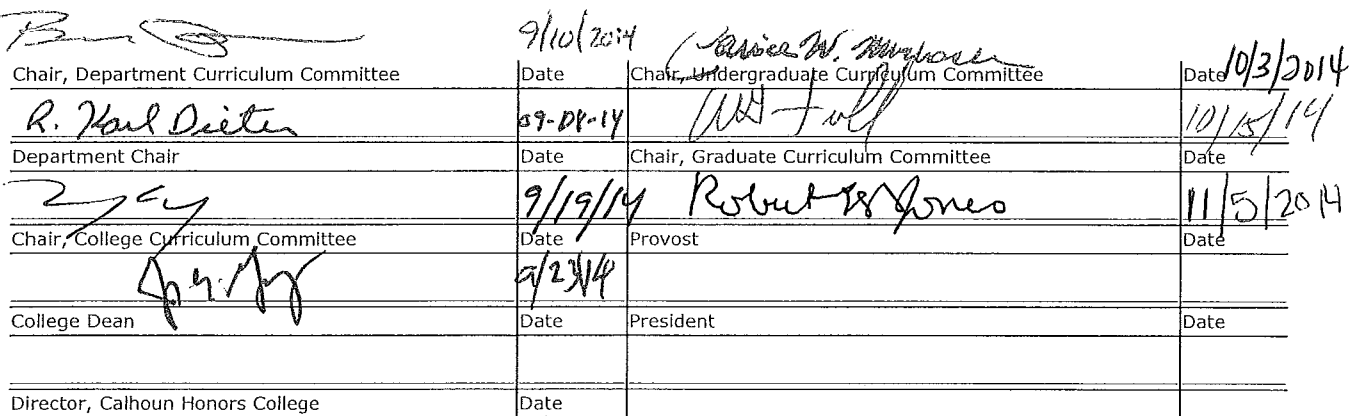 9/10/2014
Chair, Department Curriculum Committee Date Chair, Undergraduate Curriculum Committee Date 10/3/2014
R. Karl Dieter 09-04-14 10/15/14
Department Chair Date Chair, Graduate Curriculum Committee Date
9/19/14 Robert H Jones 11/5/2014
Chair, College Curriculum Committee Date Provost Date
9/23/14
College Dean Date President Date
Director, Calhoun Honors College Date